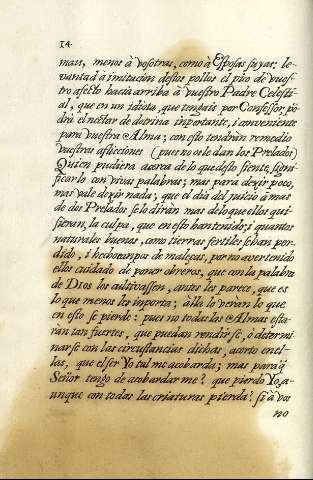 14.
man, menos à vosotras, como à Esposas suyas: le-
vantad à imitacion destos pollos el pio de vues-
tro afecto hacia arriba à vuestro Padre Celesti-
al, que en un idiota, que tengais por Confessor, po-
drà el nectar de dotrina inportante, i conveniente
para vuestra Alma; con esto tendràn remedio
vuestras aflicciones (pues no se le dan los Prelados)
Quien pudiera acerca de lo que desto siente, signi-
ficarlo con vivas palabras; mas para dezir poco,
mas vale dezir nada; que el dia del juicio à mas
de dos Prelados se lo diràn mas de lo que ellos qui-
sieran, la culpa, que en esto han tenido; i quantos
naturales buenos, como tierras fertiles se han per-
dido, i hecho tanpos de malezas, por no aver tenido
ellos cuidado de poner obreros, que con la palabra
de Dios los cultivassen, antes les parece, que es
lo que menos les inporta; àllà lo veràn lo que
en esto se pierde: pues no todas las Almas esta-
ràn tan fuertes, que puedan rendirse, ò determi-
narse con las circustancias dichas, acerto en el-
las, que el ser Yo tal me acobarda; mas para q̃
Señor tengo de acobardarme? que pierdo Yo, a-
unque con todas las criaturas pierda? si à vos
no